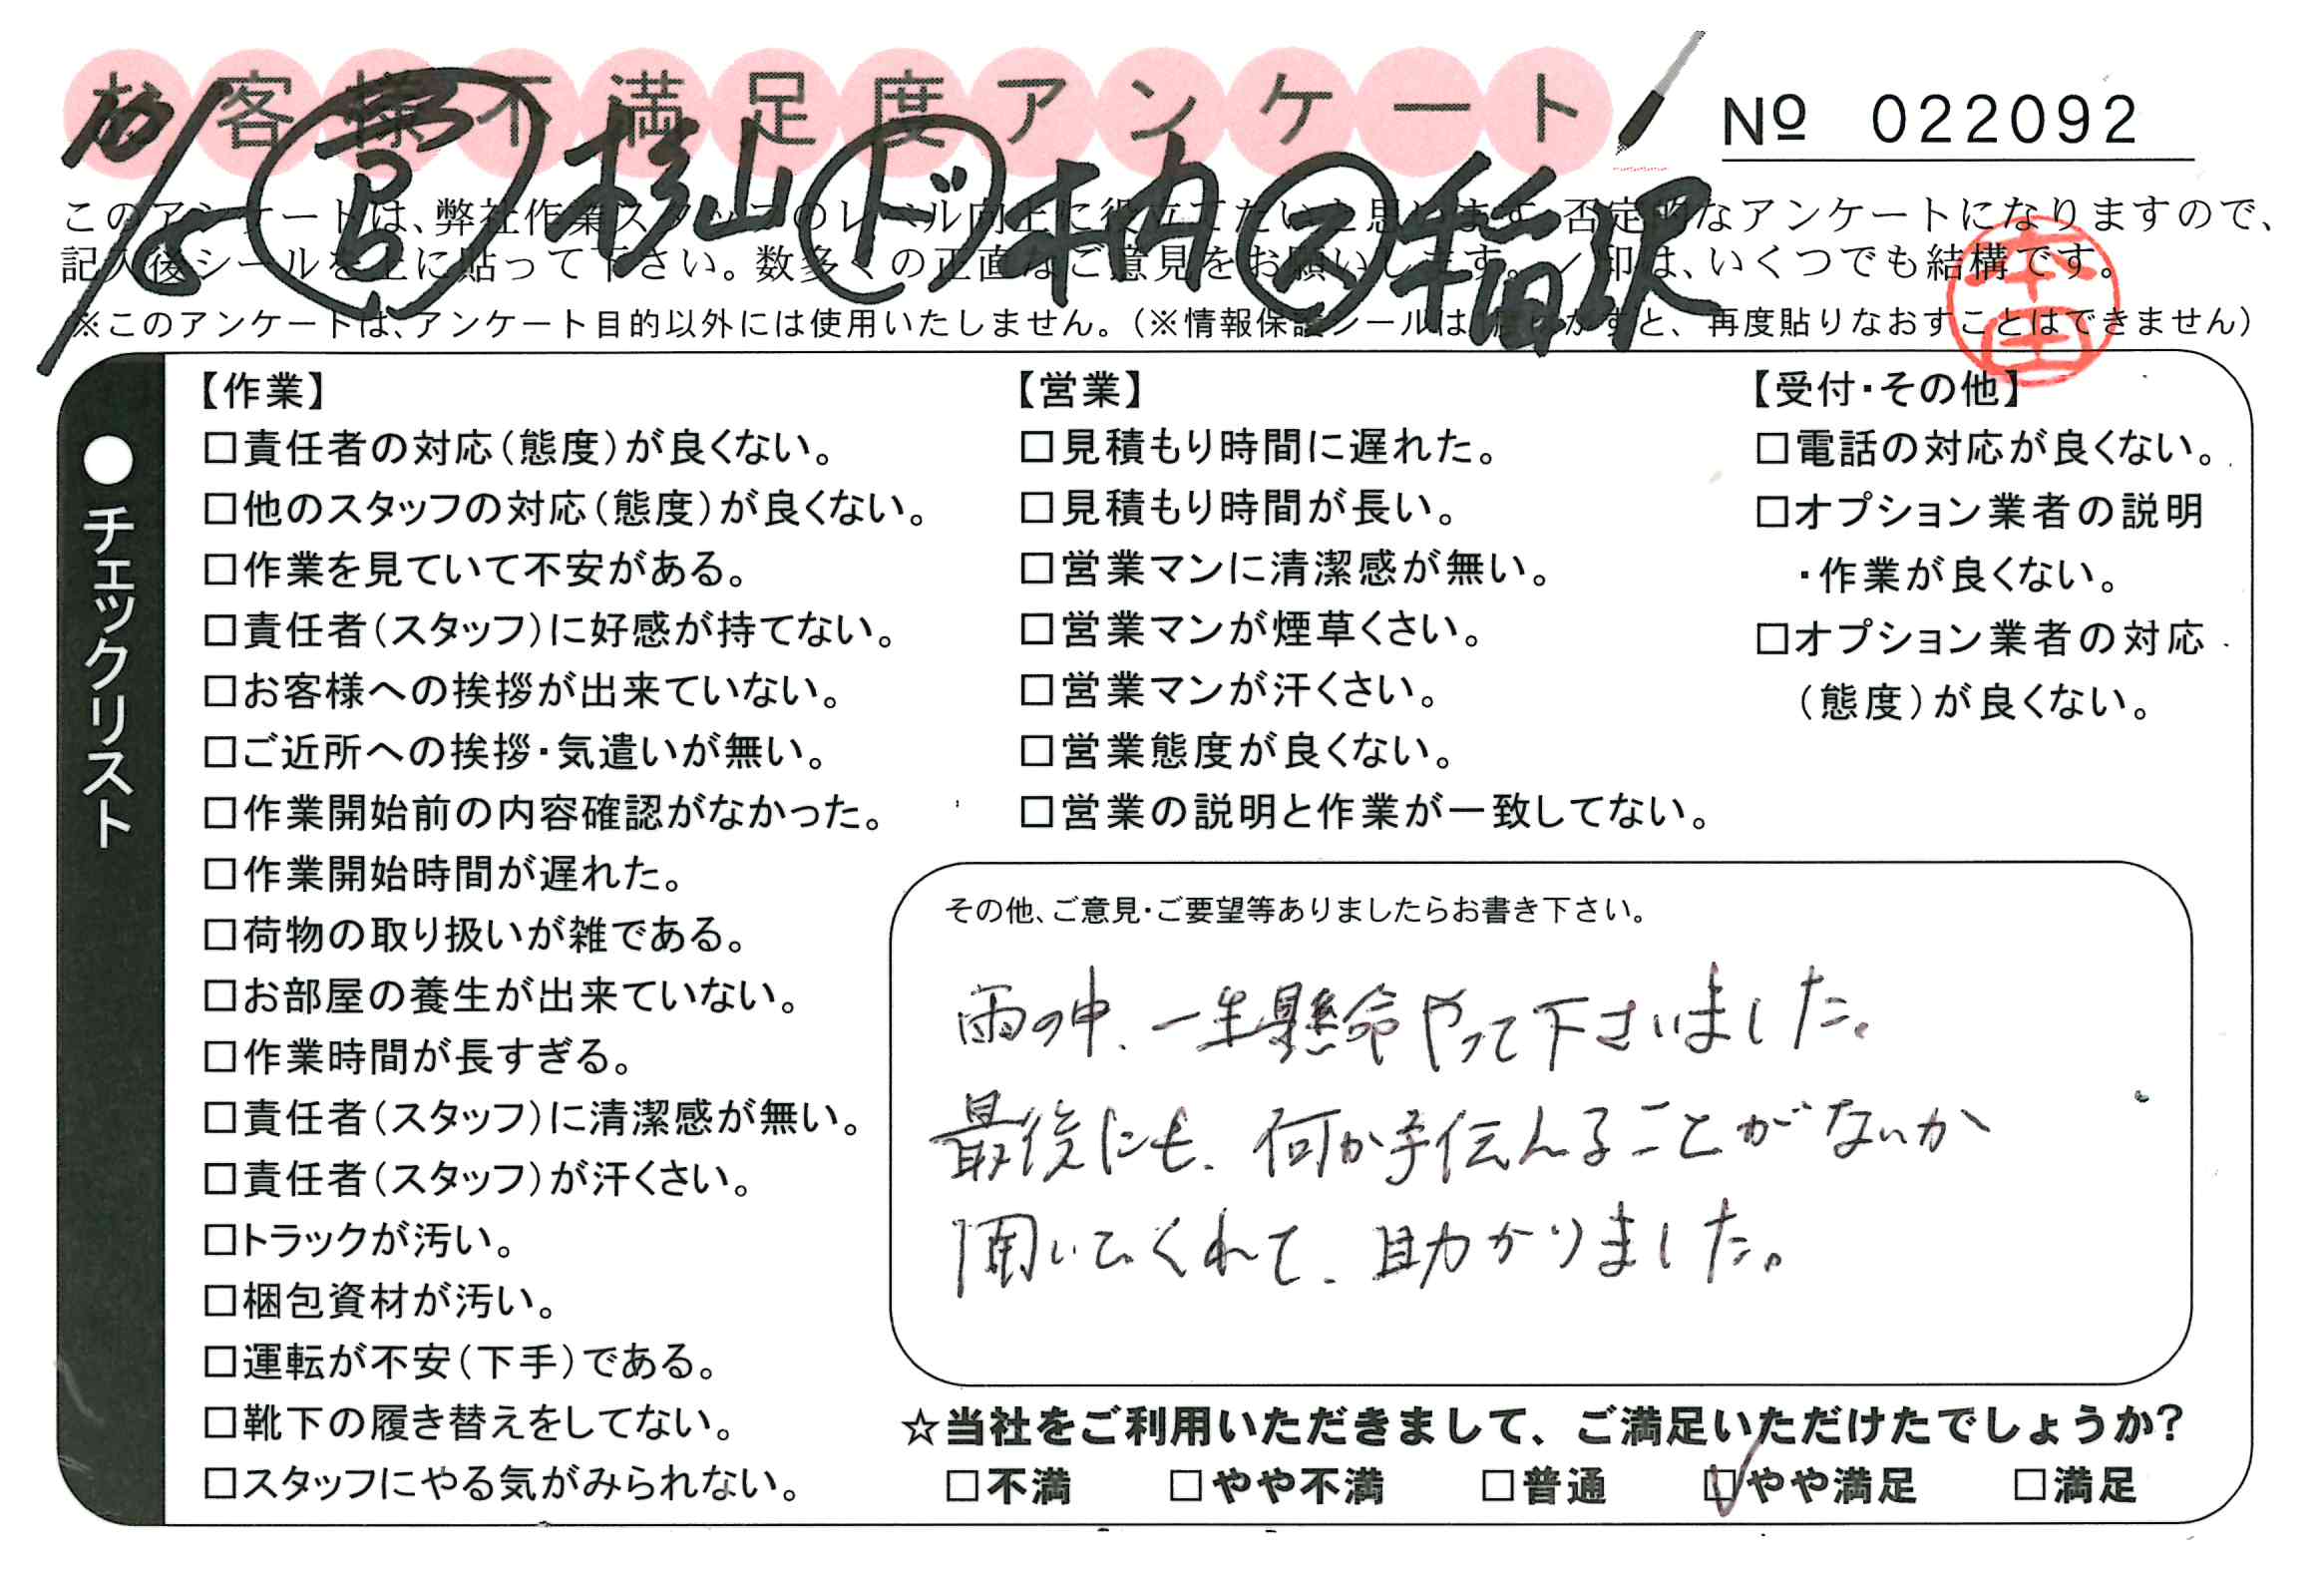 お客様不満足度アンケート
№ 022092
杉山 ド 柄 ス 稲沢
このアンケートは、弊社作業スタッフのレベル向上に役立てたいと思います。否定的なアンケートになりますので、
記入後シールを上に貼って下さい。数多くの正直なご意見をお願いします。✓印は、いくつでも結構です。
※このアンケートは、アンケート目的以外には使用いたしません。(※情報保護シールは、再度貼りなおすことはできません)
本田
●チェックリスト
【作業】
□責任者の対応(態度)が良くない。
□他のスタッフの対応(態度)が良くない。
□作業を見ていて不安がある。
□責任者(スタッフ)に好感が持てない。
□お客様への挨拶が出来ていない。
□ご近所への挨拶・気遣いが無い。
□作業開始前の内容確認がなかった。
□作業開始時間が遅れた。
□荷物の取り扱いが雑である。
□お部屋の養生が出来ていない。
□作業時間が長すぎる。
□責任者(スタッフ)に清潔感が無い。
□責任者(スタッフ)が汗くさい。
□トラックが汚い。
□梱包資材が汚い。
□運転が不安(下手)である。
□靴下の履き替えをしてない。
□スタッフにやる気がみられない。
【営業】
□見積もり時間に遅れた。
□見積もり時間が長い。
□営業マンに清潔感が無い。
□営業マンが煙草くさい。
□営業マンが汗くさい。
□営業態度が良くない。
□営業の説明と作業が一致してない。
【受付・その他】
□電話の対応が良くない。
□オプション業者の説明
・作業が良くない。
□オプション業者の対応
(態度)が良くない。
その他、ご意見・ご要望等ありましたらお書き下さい。
雨の中、一生懸命やって下さいました。
最後にも、何か手伝えることがないか
聞いてくれて、助かりました。
☆当社をご利用いただきまして、ご満足いただけたでしょうか?
□不満 □やや不満 □普通 ☑やや満足 □満足